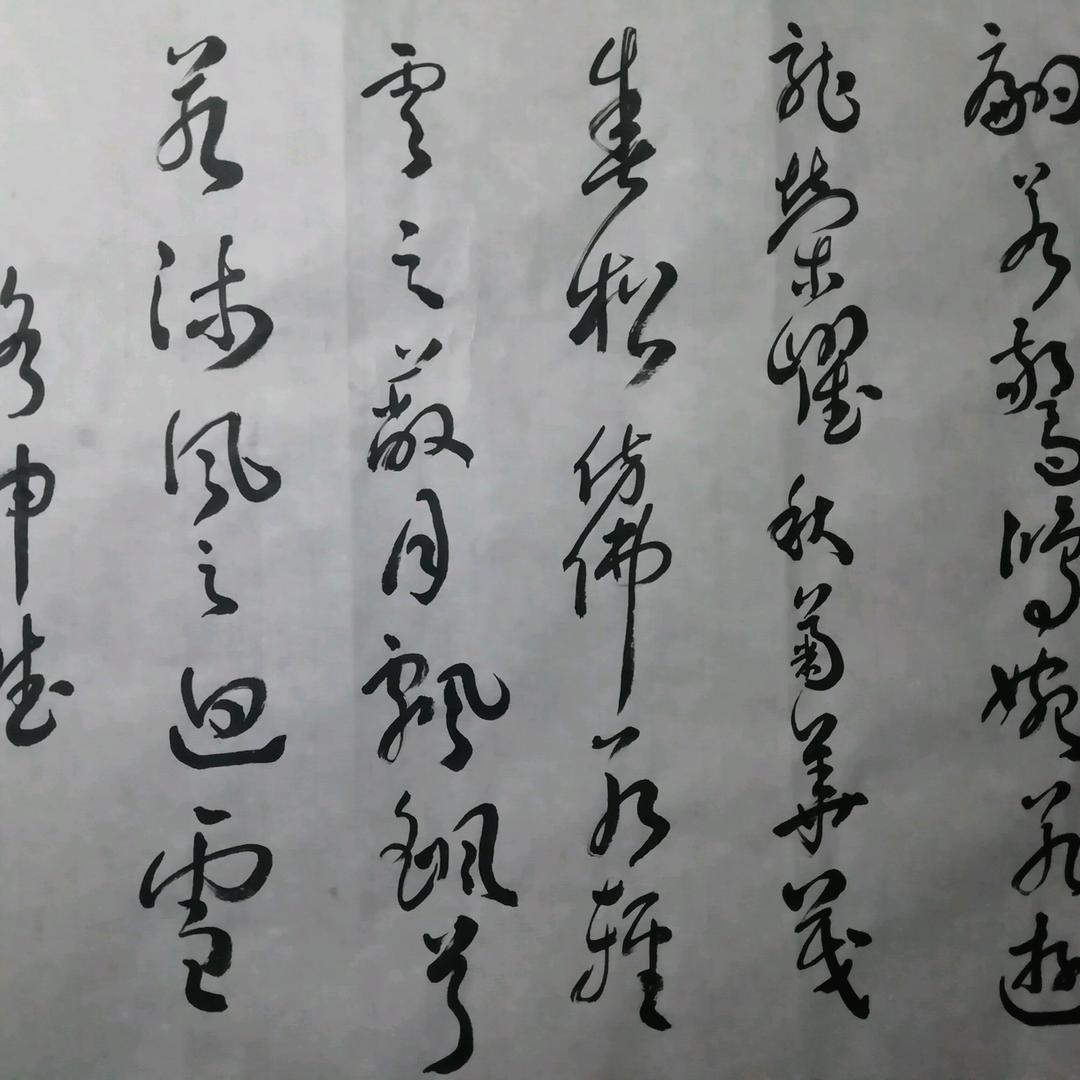 翩若驚鴻婉若遊
龍榮耀秋菊華茂
春松仿佛若輕
雲之蔽月飄飖兮
若流風之迴雪
申